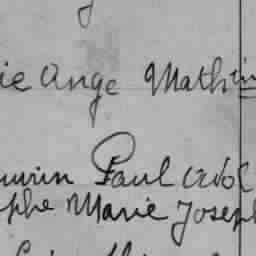 ie Ange Mathin
uwin Paul Adol
phe Marie Joseph